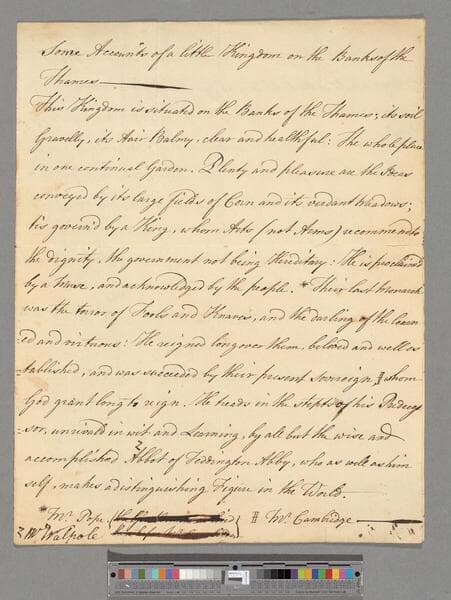 Some Accounts of a little Kingdom on the Banks of the
Thames
This Kingdom is situated on the Banks of the Thames; its soil
Gravelly, its Air Balmy, clear and healthful: The whole place
in one continual Garden. Plenty and pleasure are the Ideas
conveyed by its large fields of Corn and its verdant Meadows;
tis govern'd by a King, whom Arts (not Arms) recommend to
the dignity, the government not being Hereditary: He is proclaim'd
by a Muse, and acknowledged by the people. * Their last Monarch
was the terror of Fools and Knaves, and the darling of the learn
-ed and virtuous: He reigned long over them, beloved and well es
-tablished, and was succeeded by their present Sovereign, ‖ whom
God grant long to reign. He treads in the stepts of his Predeces
-sor, unrival'd in wit and Learning, by all but the wise and
accomplished 2 Abbot of Teddington Abby, who as well as him
self, makes a distinguishing Figure in the World.
* Mr. Pope ‖ Mr. Cambridge
2 Mr. Walpole